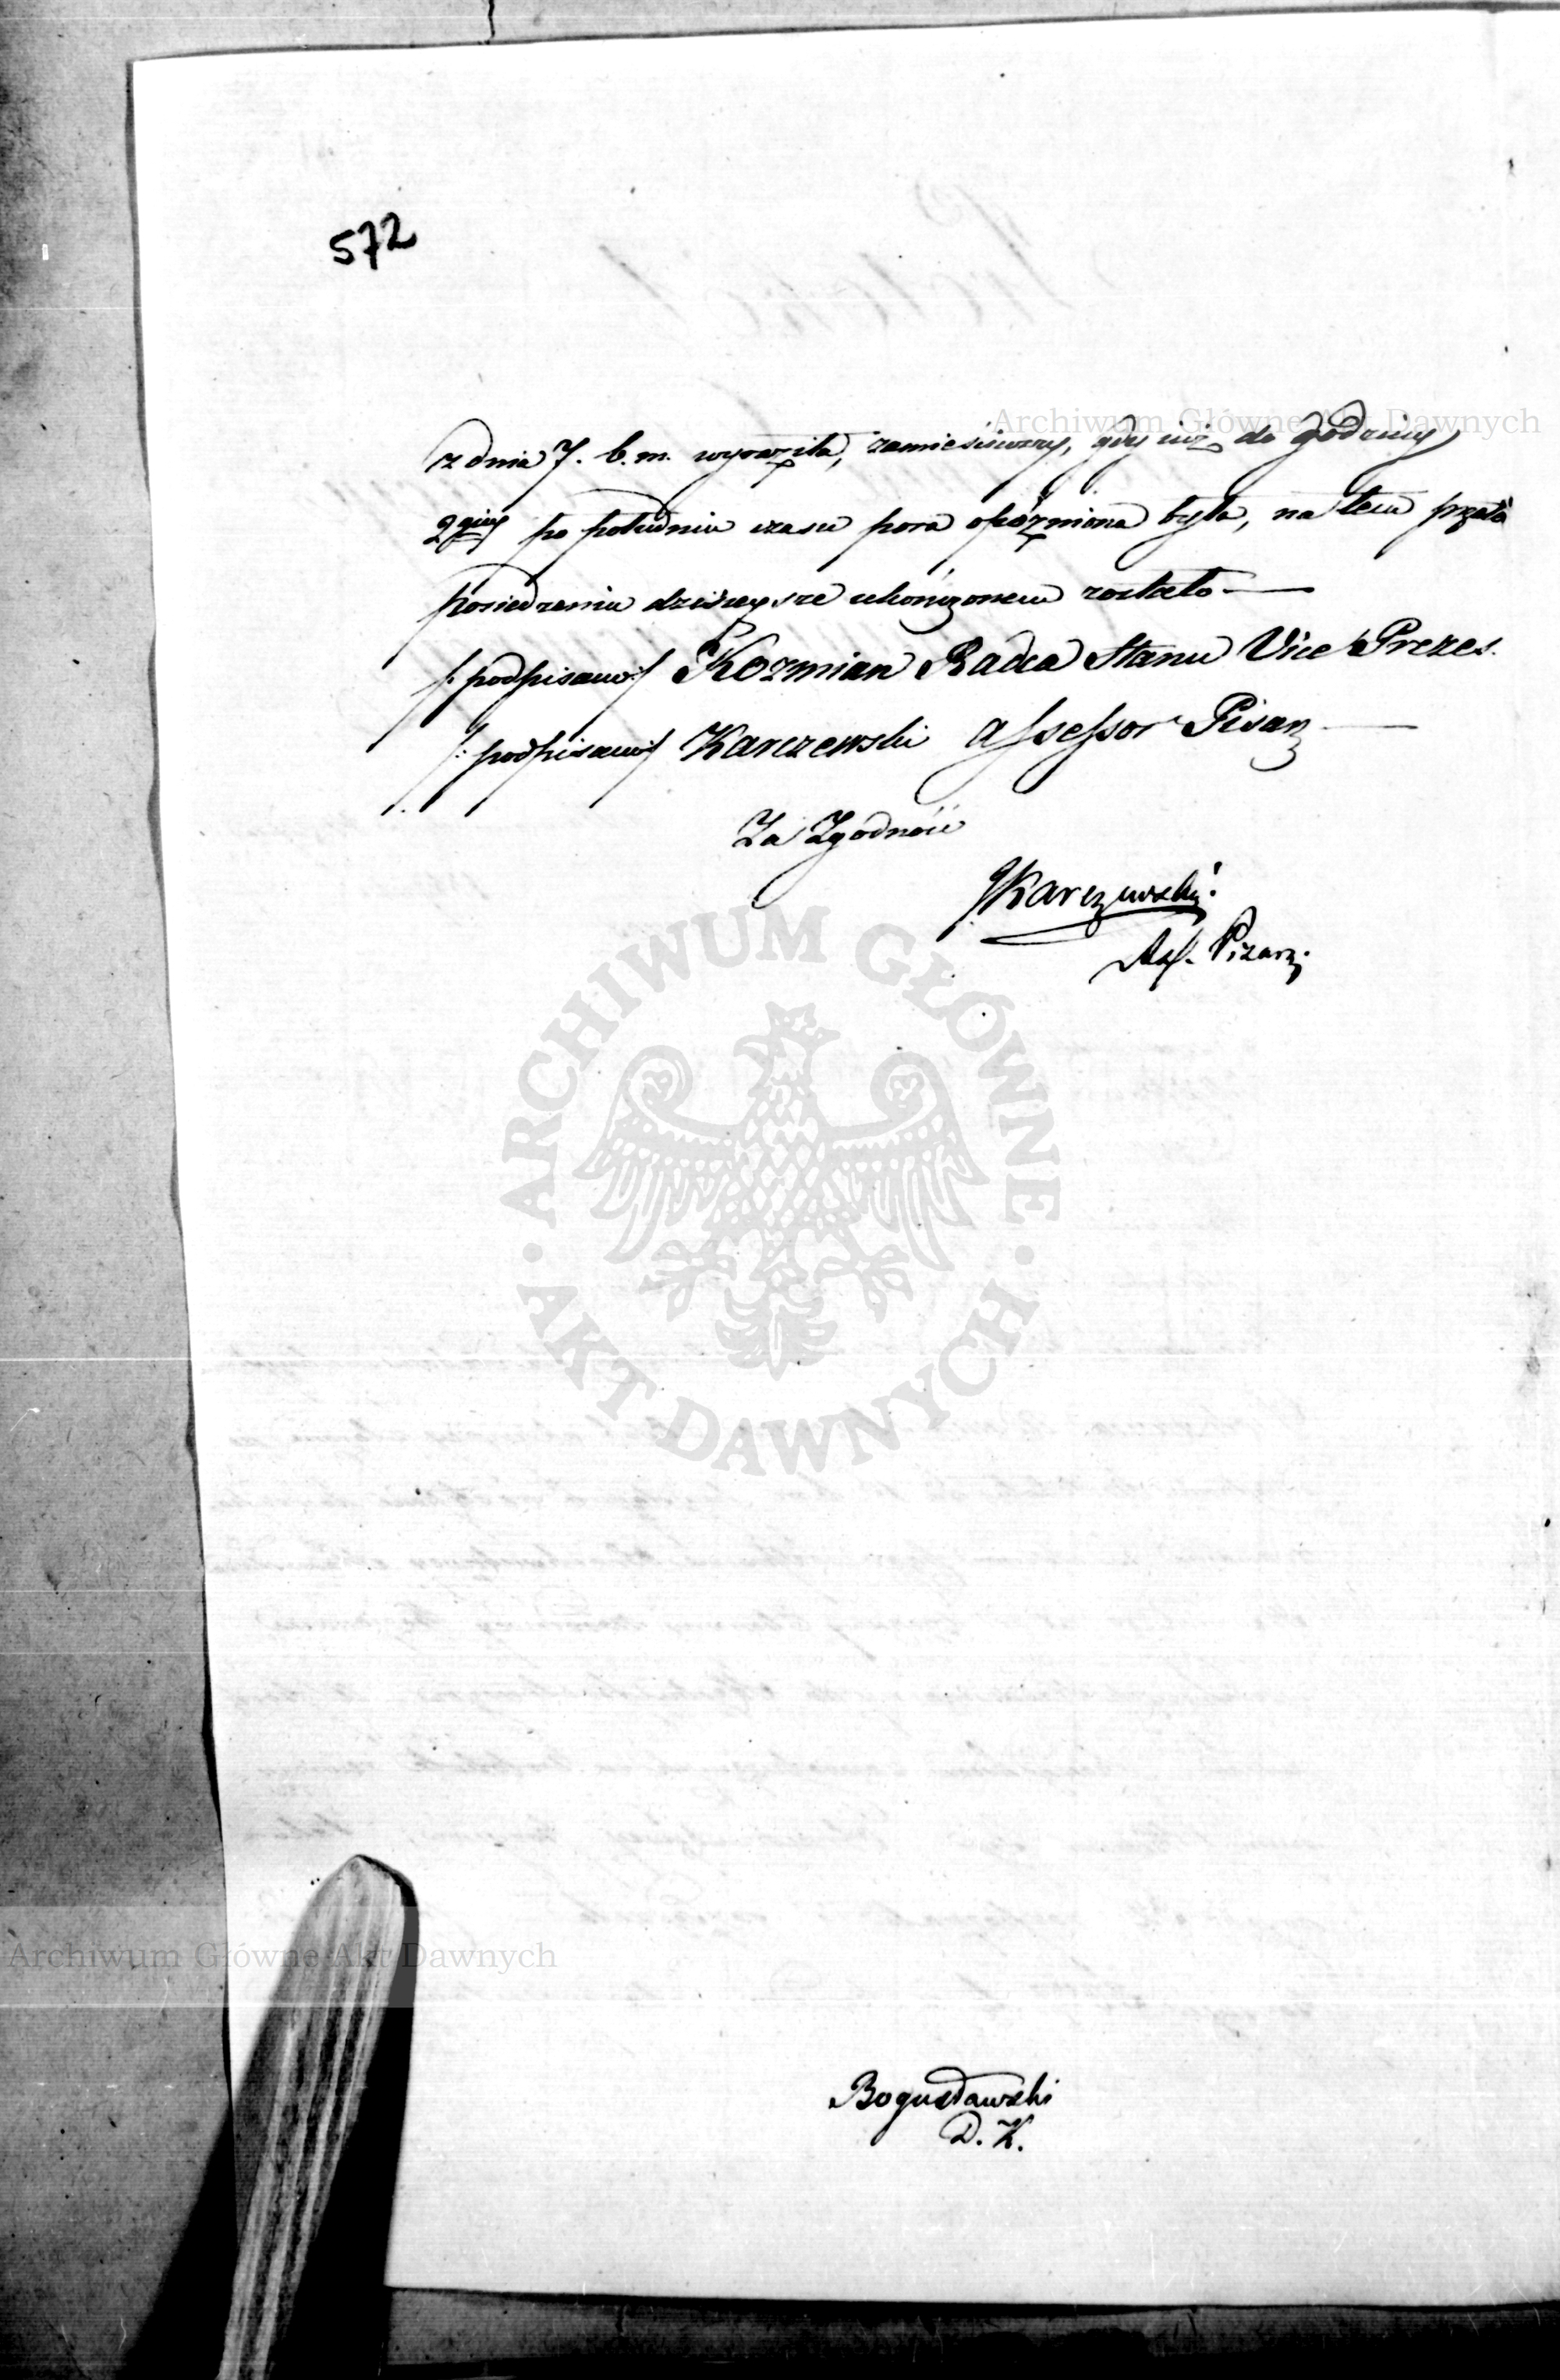 572
z dnia 7. b.m. wyraziła, zamieściwszy, gdy już do godziny
2giey po południu czasu pora opóźniona była, na tem przeto
posiedzenie dzisieysze ukończonem zostało —
/: podpisano :/ Kozmian Radca Stanu Vice Prezes.
/: podpisano :/ Karczewski Assessor Pisarz —
Za Zgodność
Karczewski.
Ass. Pisarz.
Bogusławski
D. K.
Archiwum Główne Akt Dawnych
ARCHIWUM GŁÓWNE · AKT DAWNYCH ·
Archiwum Główne Akt Dawnych